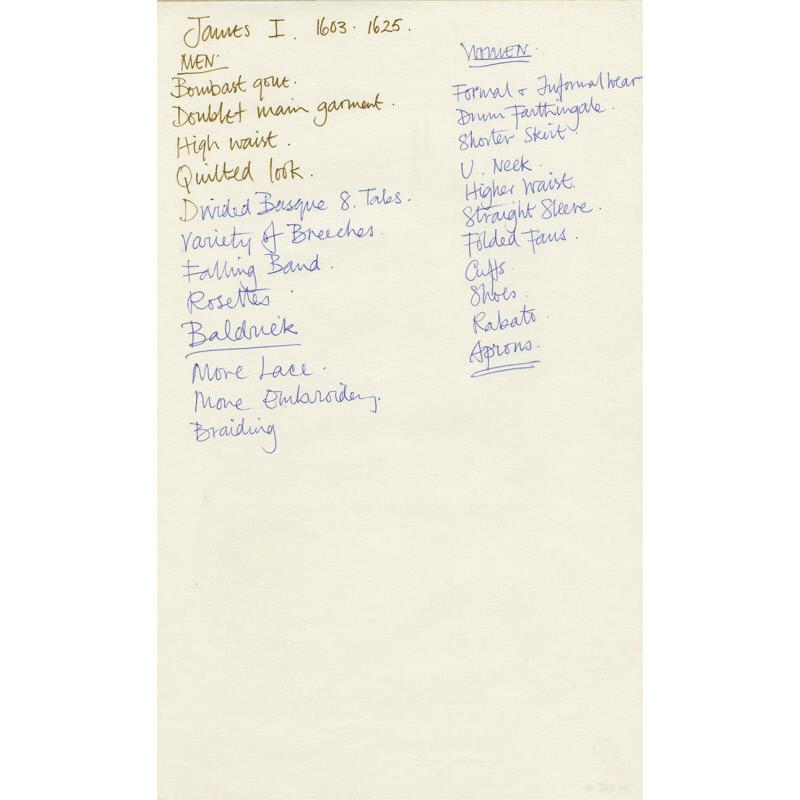 James I. 1603 - 1625.
MEN.
Bombast gone.
Doublet main garment.
High waist.
Quilted look.
Divided Basque 8. Tabs.
Variety of Breeches.
Falling Band.
Rosettes.
Baldrick
More Lace.
More Embroidery.
Braiding
WOMEN.
Formal & Informal wear
Drum Farthingale.
Shorter Skirt.
U. Neck.
Higher Waist.
Straight Sleeve.
Folded Fans.
Cuffs.
Shoes.
Rabato.
Aprons.